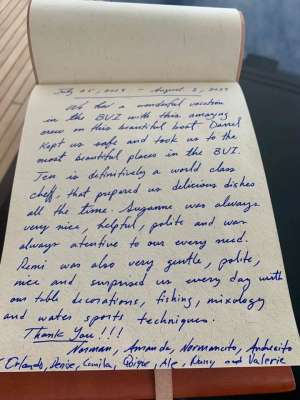 July 25, 2019 - August 2, 2019
We had a wonderful vacation
in the BUI with this amazing
crew on this beautiful boat. Daniel
Kept us safe and took us to the
most beautiful places in the BVI.
Jen is definitively a world class
cheff, that prepared us delicious dishes
all the time. Suzanne was always
very nice, helpful, polite and was
always atentive to our every need.
Remi was also very gentle, polite,
nice and surprised us every day with
our table decorations, fishing, mixology
and water sports techniques.
Thank You!!!
Norman, Amanda, Normancito, Andresito
Orlando, Denise, Camila, Quique, Ale, Rainy and Valerie